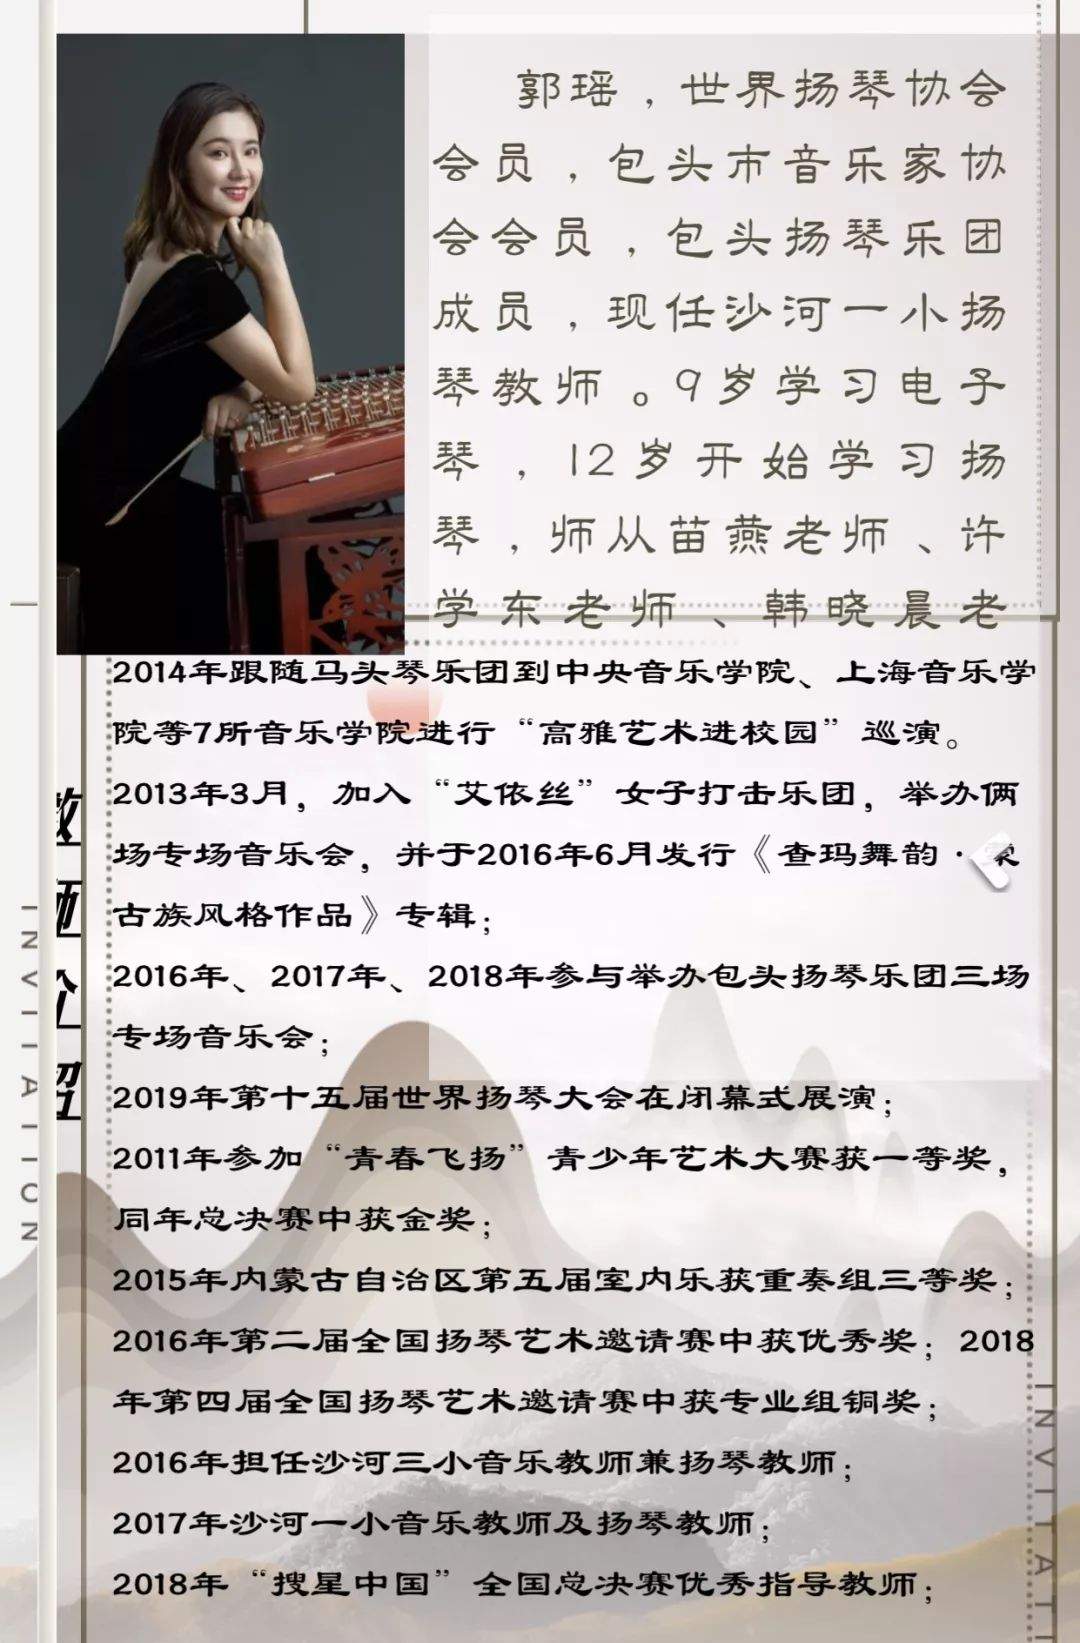 郭瑶，世界扬琴协会
会员，包头市音乐家协
会会员，包头扬琴乐团
成员，现任沙河一小扬
琴教师。9岁学习电子
琴，12岁开始学习扬
琴，师从苗燕老师、许
学东老师、韩晓晨老
2014年跟随马头琴乐团到中央音乐学院、上海音乐学
院等7所音乐学院进行“高雅艺术进校园”巡演。
2013年3月，加入“艾依丝”女子打击乐团，举办俩
场专场音乐会，并于2016年6月发行《查玛舞韵·蒙
古族风格作品》专辑；
2016年、2017年、2018年参与举办包头扬琴乐团三场
专场音乐会；
2019年第十五届世界扬琴大会在闭幕式展演；
2011年参加“青春飞扬”青少年艺术大赛获一等奖，
同年总决赛中获金奖；
2015年内蒙古自治区第五届室内乐获重奏组三等奖；
2016年第二届全国扬琴艺术邀请赛中获优秀奖；2018
年第四届全国扬琴艺术邀请赛中获专业组铜奖；
2016年担任沙河三小音乐教师兼扬琴教师；
2017年沙河一小音乐教师及扬琴教师；
2018年“搜星中国”全国总决赛优秀指导教师；
教师介绍
INVITATION
INVITATI